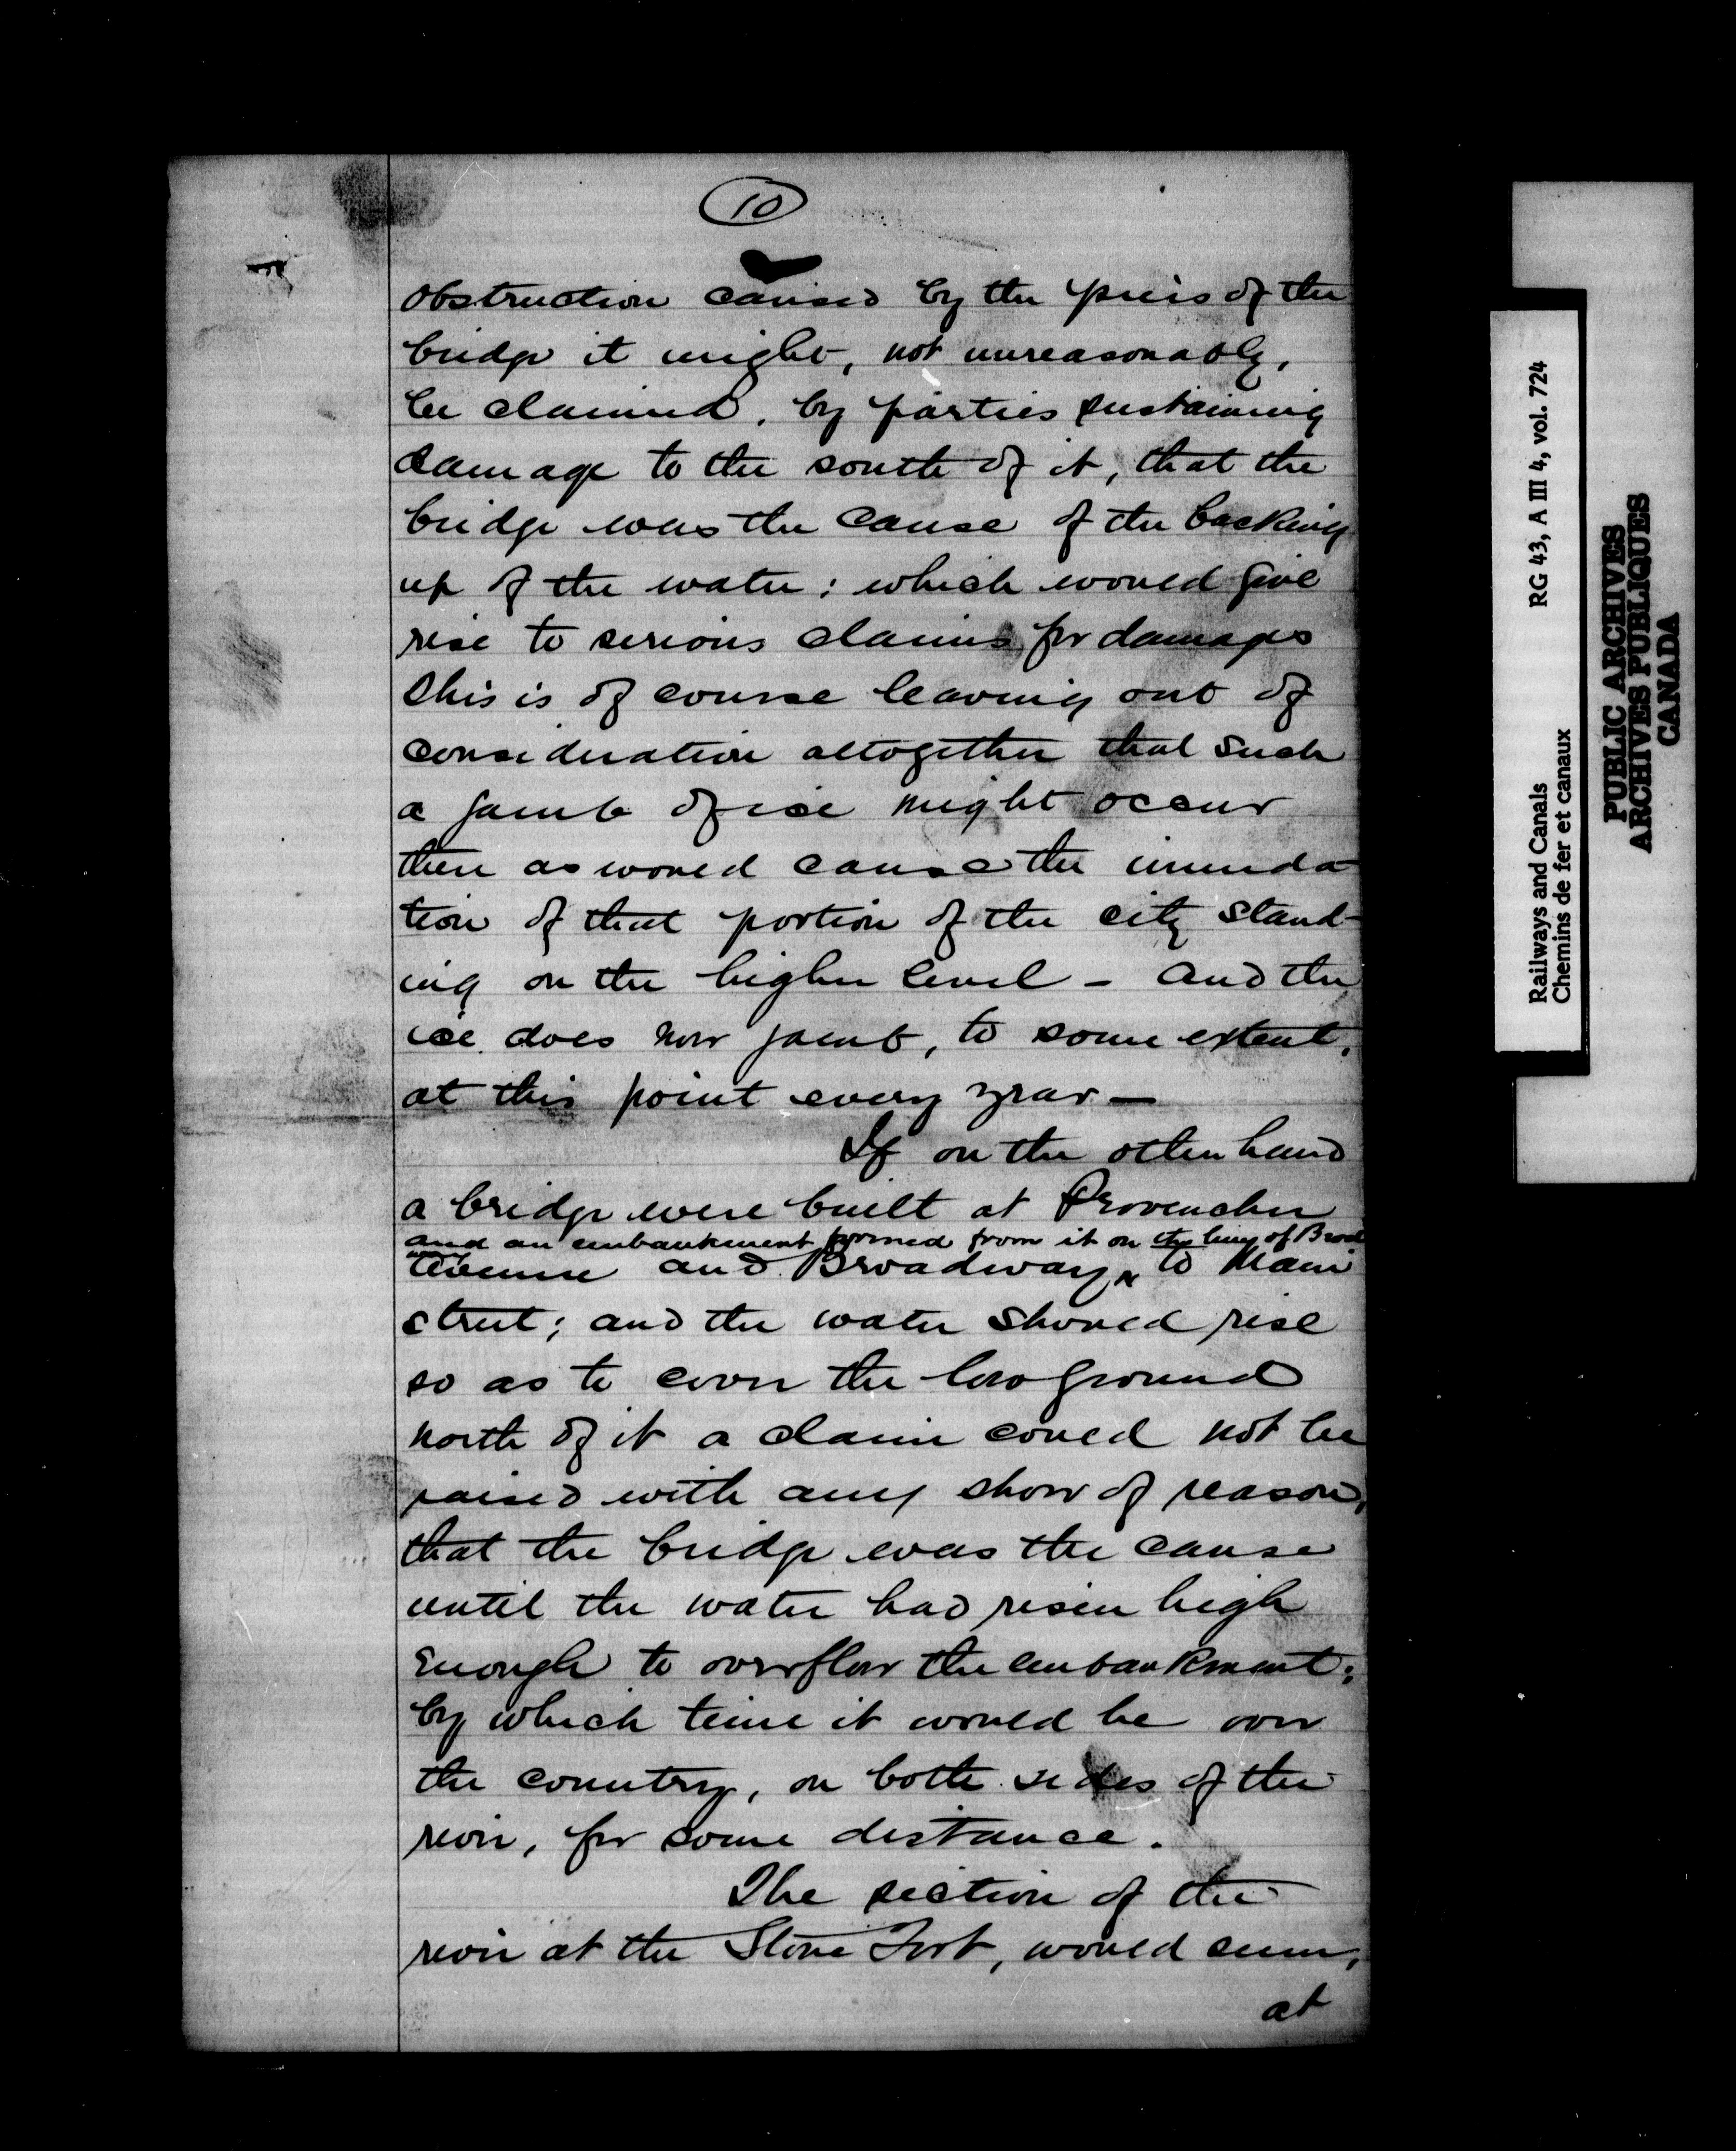 10
obstruction caused by the piers of the
bridge it might, not unreasonably,
be claimed, by parties sustaining
damage to the south of it, that the
bridge was the cause of the backing
up of the water; which would give
rise to serious claims for damages
This is of course leaving out of
consideration altogether that such
a jamb of ice might occur
then as would cause the inunda-
tion of that portion of the city stand-
ing on the higher level - and the
ice does now jamb, to some extent,
at this point every year —
If on the other hand
a bridge were built at Provencher
and an embankment formed from it on the line of Broad
way
Avenue and Broadway to Main
street; and the water should rise
so as to cover the low ground
north of it a claim could not be
raised with any show of reason,
that the bridge was the cause
until the water had risen high
enough to overflow the embankment;
by which time it would be over
the country, on both sides of the
river, for some distance.
The section of the
river at the Stone Fort, would seem,
at
Railways and Canals RG 43, A III 4, vol. 724
Chemins de fer et canaux
PUBLIC ARCHIVES
ARCHIVES PUBLIQUES
CANADA